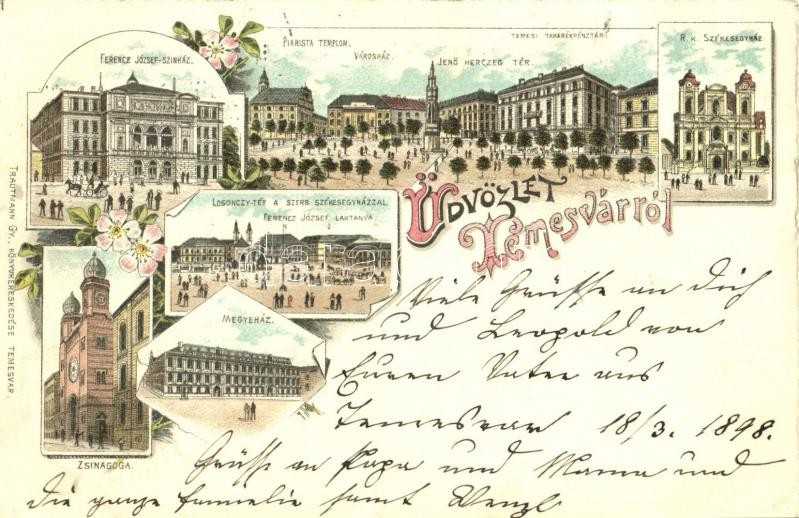 FERENCZ JÓZSEF-SZINHÁZ.
PIARISTA TEMPLOM.
VÁROSHÁZ.
TEMESI TAKARÉKPÉNZTÁR.
JENŐ HERCZEG TÉR.
R. K. SZÉKESEGYHÁZ
LOSONCZY-TÉR A SZERB SZÉKESEGYHÁZZAL.
FERENCZ JÓZSEF LAKTANYA.
ÜDVÖZLET
TEMESVÁRRÓL
MEGYEHÁZ.
ZSINAGOGA.
TRAUTMANN GY., KÖNYVKERESKEDÉSE TEMESVÁR.
Viele Grüsse an dich
und Leopold von
Euren Vater aus
Temesvar 18/3. 1898.
Grüsse an Papa und Mama und
die ganze fammelie samt Wenzl